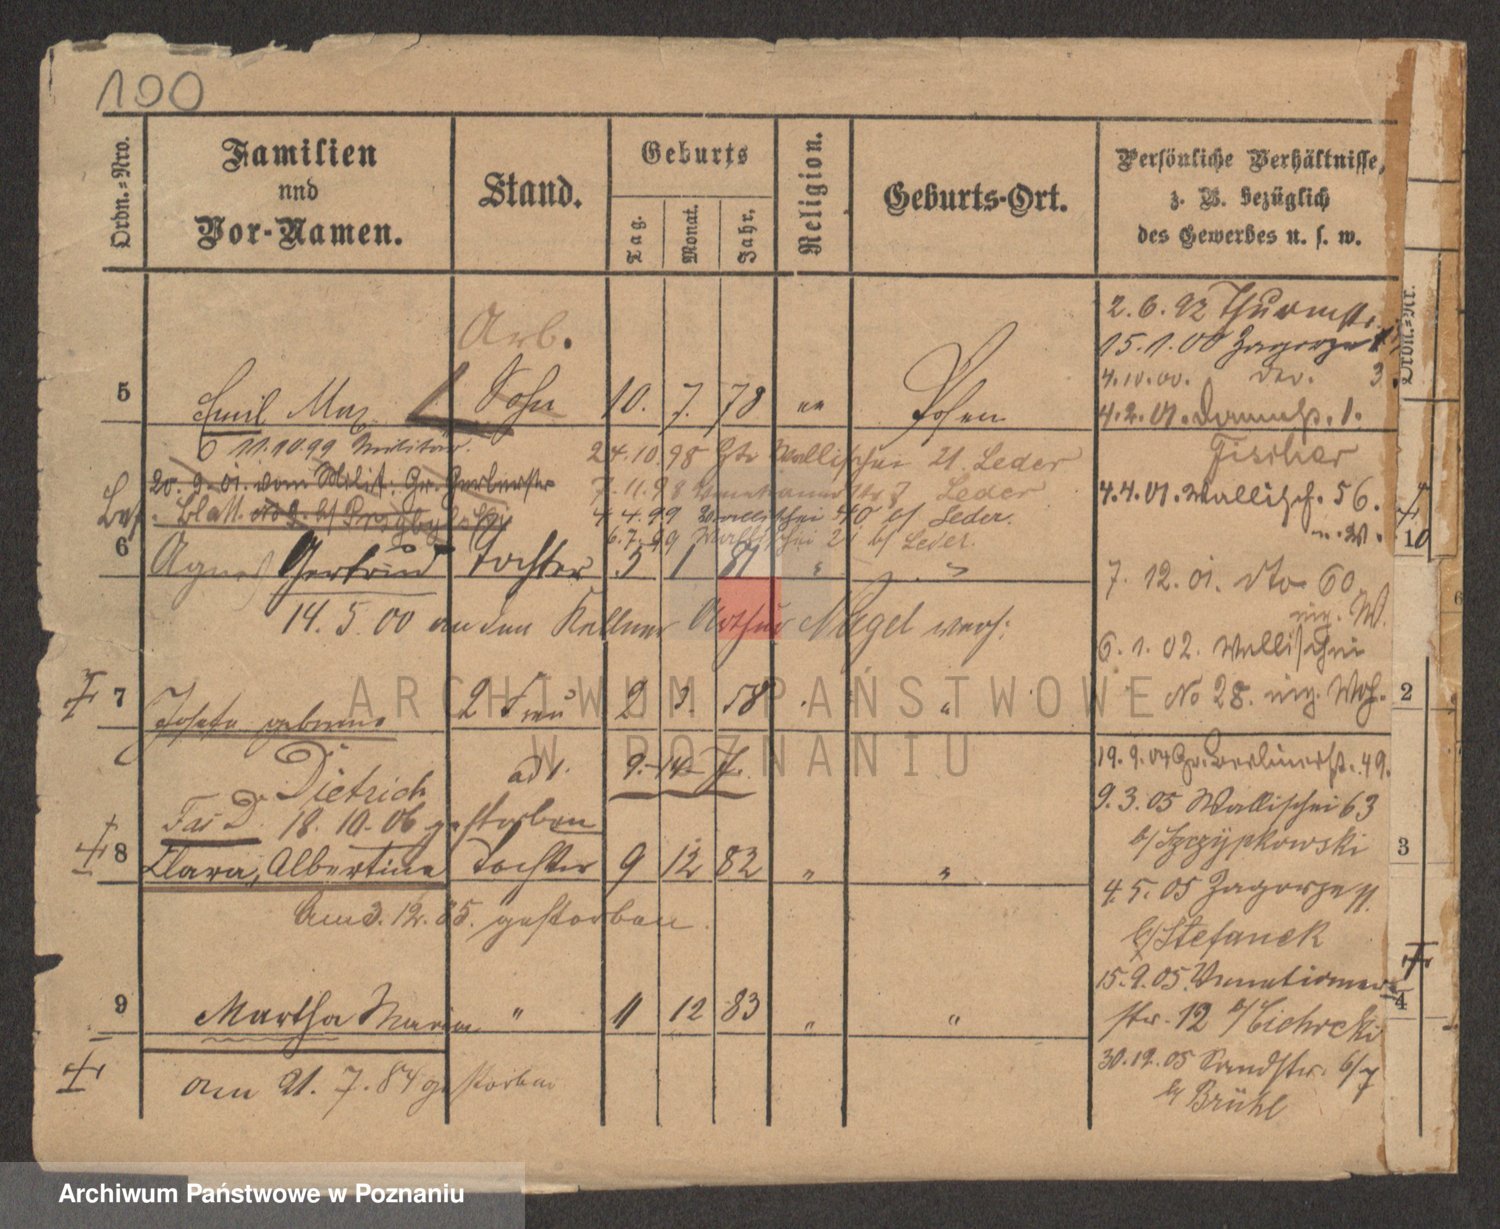 100
Ordn.=Nro.
Familien
und
Vor-Namen.
Stand.
Geburts
Tag.
Monat.
Jahr.
Religion.
Geburts-Ort.
Persönliche Verhältnisse,
z. B. bezüglich
des Gewerbes u. s. w.
Ordn.=Nr.
Arb.
5 Emil Max Sohn 10. 7. 78 " Posen
2.6.92 Thurmstr.
15.1.00 Zagorze
4.10.00. 3.
4.2.01. 1.
Fischer
11.10.99 Militär.
20. 9. 01. vom Milit. Gr. Gerberstr
Blatt No
24.10.98 Wallischei 21. Leder
7.11.98 Venetianerstr 7 Leder
4.4.99 Wallischei 40 b/ Leder.
6.7.99 Wallischei 21 b/ Leder.
4.4.01. Wallisch. 56.
u. W.
6 Agnes Gertrud Tochter 5 1 81 " "
14. 5. 00 an den Kellner Arthur Nagel verh:
7. 12. 01. dto 60
W.
6. 1. 02. Wallischei
No 28.
7 Josefa geborene 2 Frau 2 3. 58 "
Dietrich
9.-14- J.
18. 10. 06 gestorben
19. 9. 04 Gr. Berlinerstr. 49.
9. 3. 05 Wallischei 63
b/ Szczypkowski
8 Clara, Albertine Tochter 9 12 82 " "
Am 3. 12. 85. gestorben.
4. 5. 05 Zagorze 11.
b/ Stefanek
15. 9. 05. Venetianer-
str. 12 b/ Cichocki
9 Martha Maria " 11 12 83 " "
am 21. 7. 84 gestorben
30. 12. 05 Sandstr. 6/7
b/ Brühl
10
2
3
4
6
ARCHIWUM PAŃSTWOWE
W POZNANIU
Archiwum Państwowe w Poznaniu